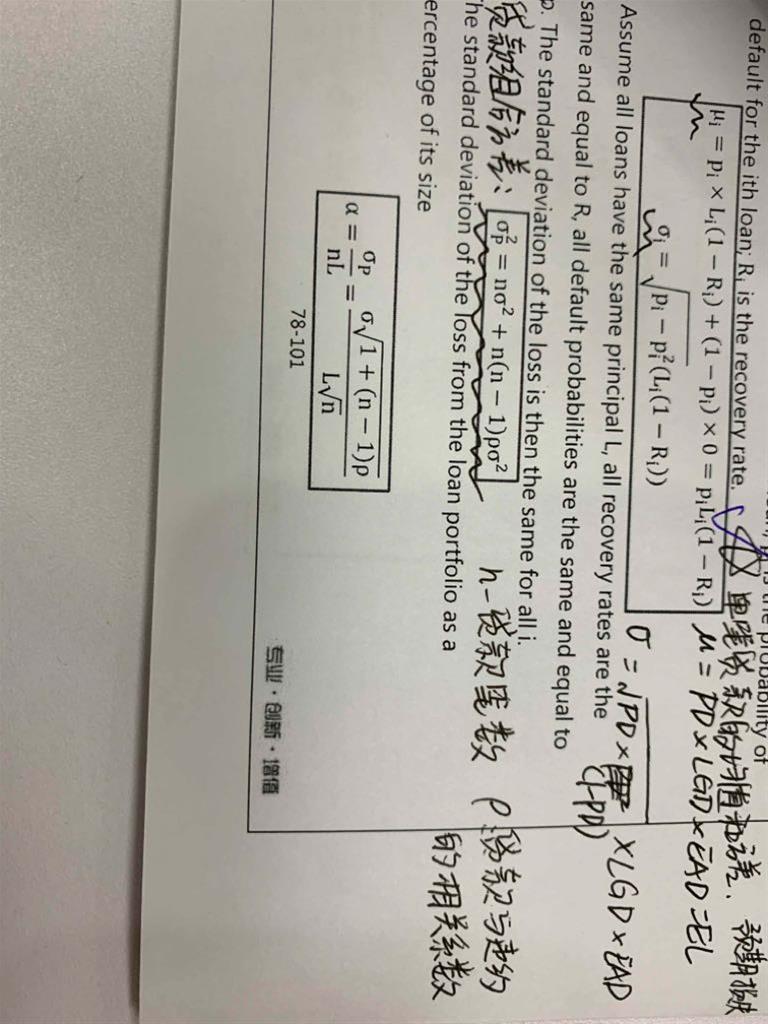 is the probability of
default for the ith loan; Rᵢ is the recovery rate.
单笔贷款的均值和方差. 预期损失
μᵢ = pᵢ × Lᵢ(1 − Rᵢ) + (1 − pᵢ) × 0 = pᵢLᵢ(1 − Rᵢ)
μ = PD × LGD × EAD = EL
σᵢ = √pᵢ − pᵢ²(Lᵢ(1 − Rᵢ))
σ = √PD × (1-PD) × LGD × EAD
Assume all loans have the same principal L, all recovery rates are the
same and equal to R, all default probabilities are the same and equal to
p. The standard deviation of the loss is then the same for all i.
贷款组合方差:
σₚ² = nσ² + n(n − 1)ρσ²
n-贷款笔数 ρ:贷款与违约
的相关系数
he standard deviation of the loss from the loan portfolio as a
ercentage of its size
α = σₚ/nL = σ√1 + (n − 1)ρ/L√n
78-101
专业·创新·增值